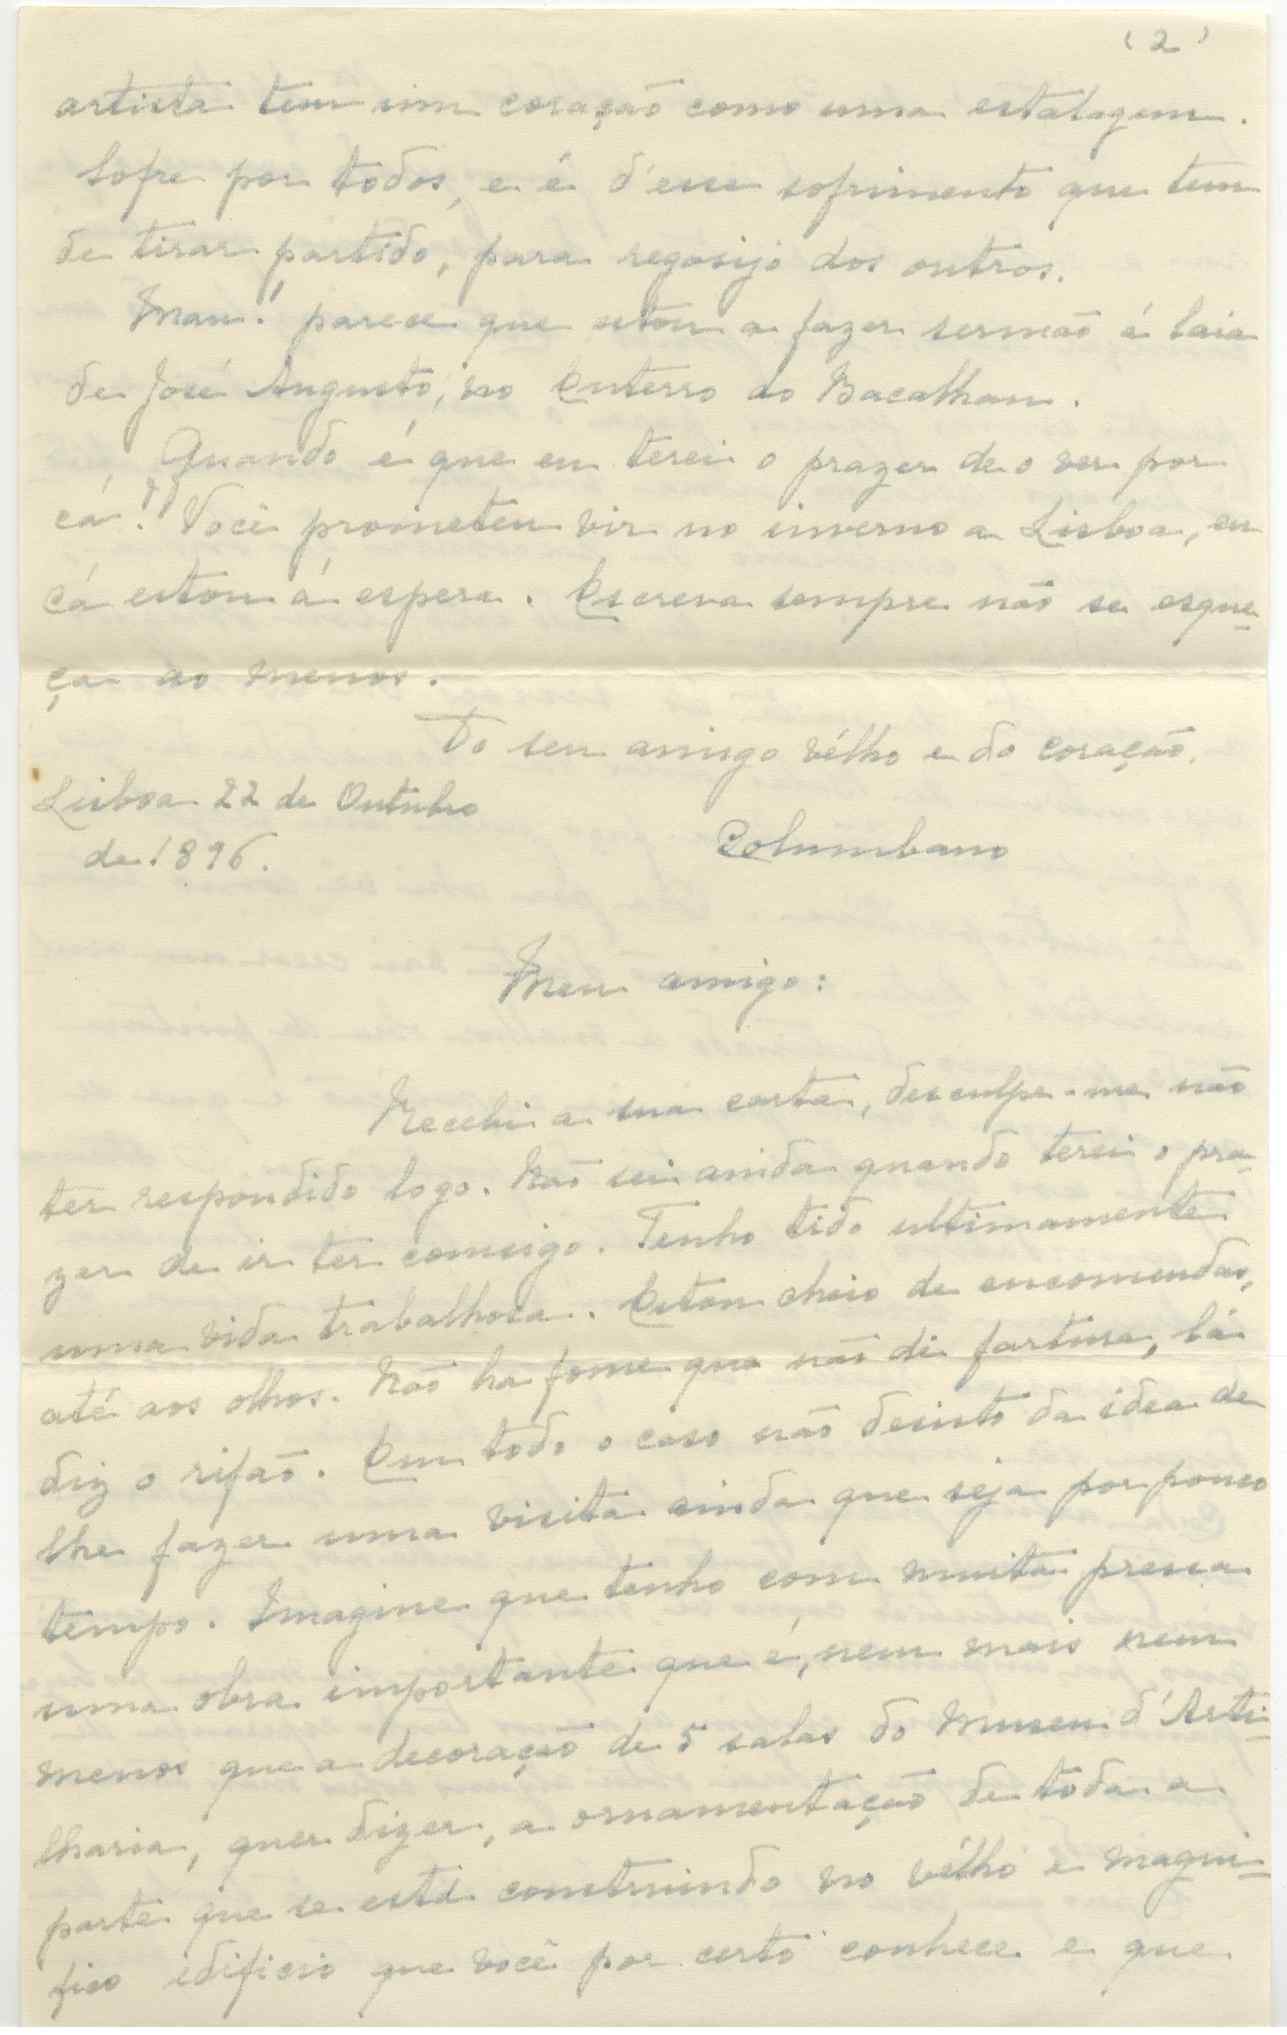 (2)
artista tem um coração como uma estalagem.
Sofre por todos, e é d'esse sofrimento que tem
de tirar partido, para regosijo dos outros.
Mau! parece que estou a fazer sermão á laia
de José Augusto, no Enterro do Bacalhau.
Quando é que eu terei o prazer de o ver por
cá!? Você prometeu vir no inverno a Lisboa, eu
cá estou á espera. Escreva sempre não se esque-
ça ao menos.
Do seu amigo vélho e do coração.
Lisboa 22 de Outubro
de 1896.
Columbano
Meu amigo:
Recebi a sua carta, desculpe-me não
ter respondido logo. Não sei ainda quando terei o pra-
zer de ir ter comsigo. Tenho tido ultimamente
uma vida trabalhosa. Estou cheio de encomendas,
até aos olhos. Não ha fome que não dê fartura, lá
diz o rifão. Em todo o caso não desisto da idea de
lhe fazer uma visita ainda que seja por pouco
tempo. Imagine que tenho com muita pressa
uma obra importante que é, nem mais nem
menos que a decoração de 5 salas do Museu d'Arti-
lharia, quer dizer, a ornamentação de toda a
parte que se está construindo no vélho e magni-
fico idificio que você por certo conhece e que